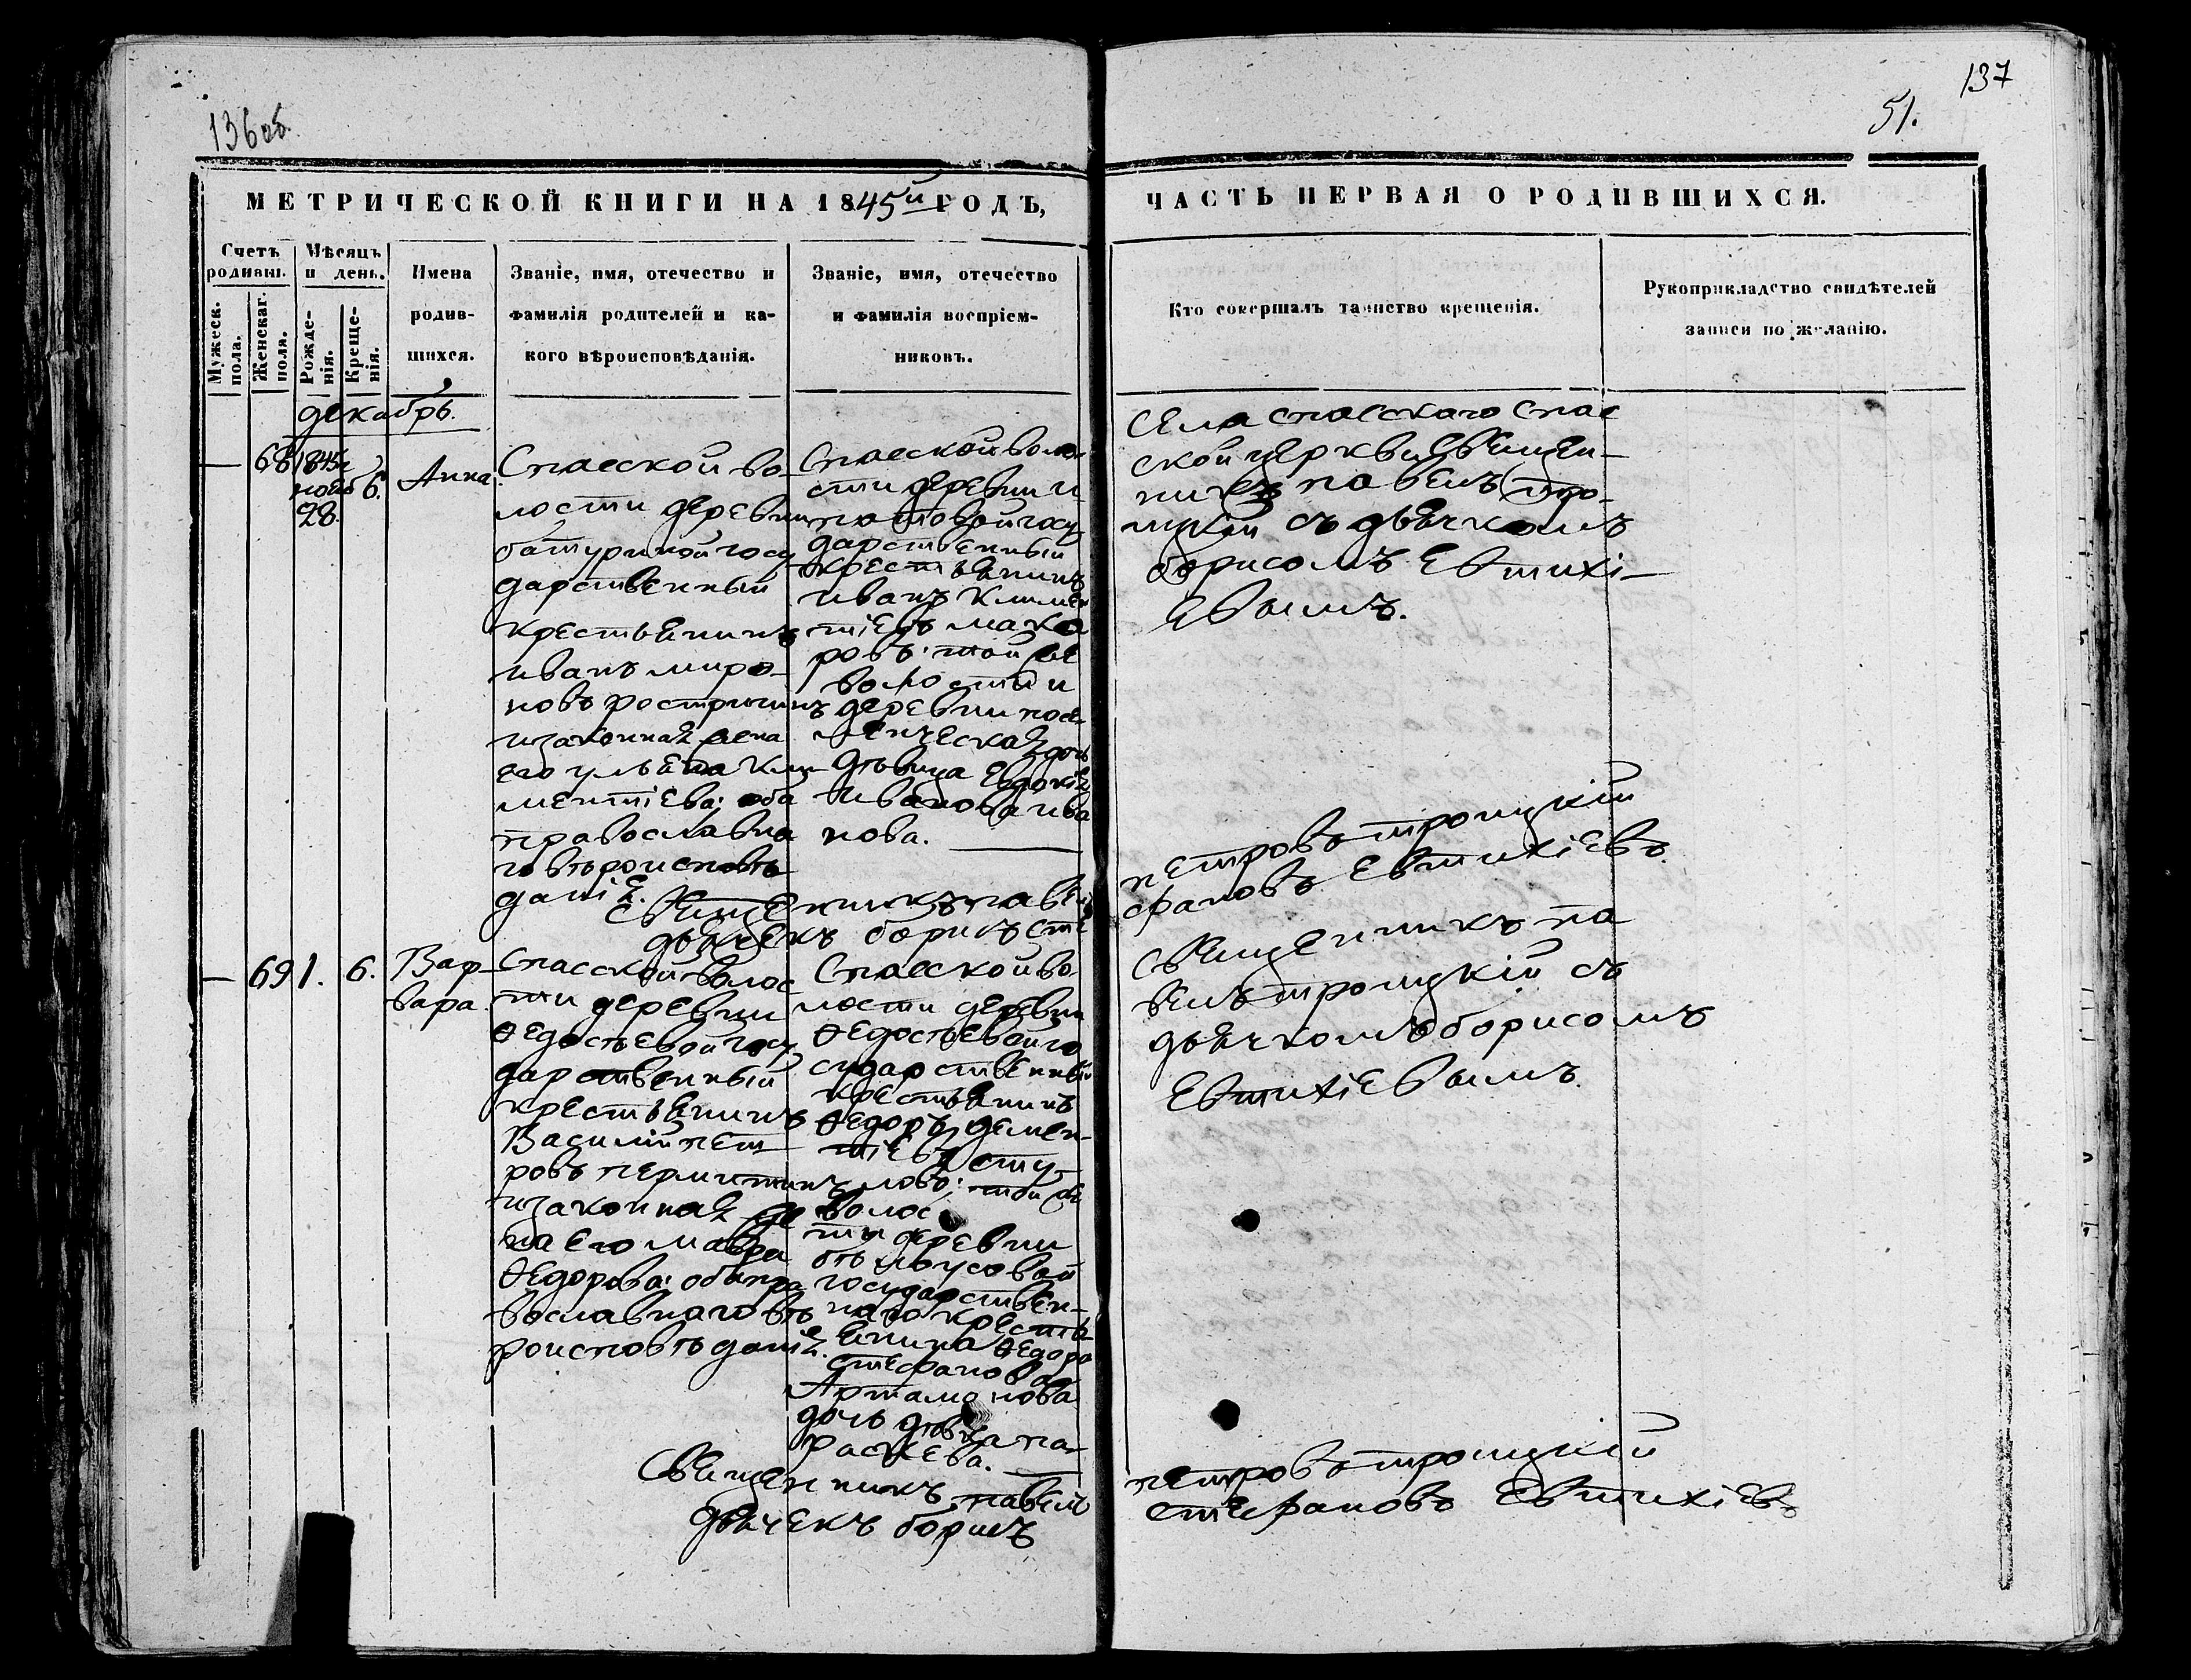 136об.
137
51.
МЕТРИЧЕСКОЙ КНИГИ НА 1845й ГОДЪ,
ЧАСТЬ ПЕРВАЯ О РОДИВШИХСЯ.
Счетъ родивш.
Мужеск. пола.
Женскаг. пола.
Мѣсяцъ и день.
Рожденія.
Крещенія.
Имена
родив-
шихся.
Званіе, имя, отечество и
фамилія родителей и ка-
кого вѣроисповѣданія.
Званіе, имя, отечество
и фамилія воспріем-
никовъ.
Кто совершалъ таинство крещенія.
Рукоприкладство свидѣтелей
записи по желанію.
декабрь.
—
68
1845г
нояб
28.
6.
Анна
Спасской во-
лости деревни
батуриной госу
дарственный
крестьянинъ
иванъ миро-
новъ
изаконная жена
его ульяна кли-
ментіева; оба
православна
го вѣроисповѣ-
данія.
Спасской воло-
сти деревни и-
патовой госу
дарственный
крестьянинъ
иванъ климен
тіевъ мака
ровъ: той же
волости и
деревни
дочь
дѣвица Евдокія
иванова ива
нова.
Села спасскаго спас
ской церкви священ-
никъ павелъ тро-
ицкій съ дьячкомъ
борисомъ Евтихі-
евымъ.
священникъ павелъ
петровъ троицкій
дьячекъ борисъ сте
фановъ Евтихіевъ.
—
69
1.
6.
Вар-
вара.
Спасской волос
ти деревни
ѳедосѣевой госу
дарственный
крестьянинъ
Василій пет-
ровъ пермитинъ
изаконная же
на его мавра
ѳедорова: оба пра
вославнаго вѣ
роисповѣданія.
Спасской во-
лости деревни
ѳедосѣевой го
сударственный
крестьянинъ
ѳедоръ демен-
тіевъ
той же
волос
ти деревни
бѣлоусовой
государствен-
наго кресть
янина ѳедора
стефанова
Артамонова
дочь дѣвка па-
раскева.
священникъ па
велъ троицкій съ
дьячкомъ борисомъ
Евтихіевымъ.
Священникъ павелъ
петровъ троицкій
дьячекъ борисъ
стефановъ Евтихіевъ